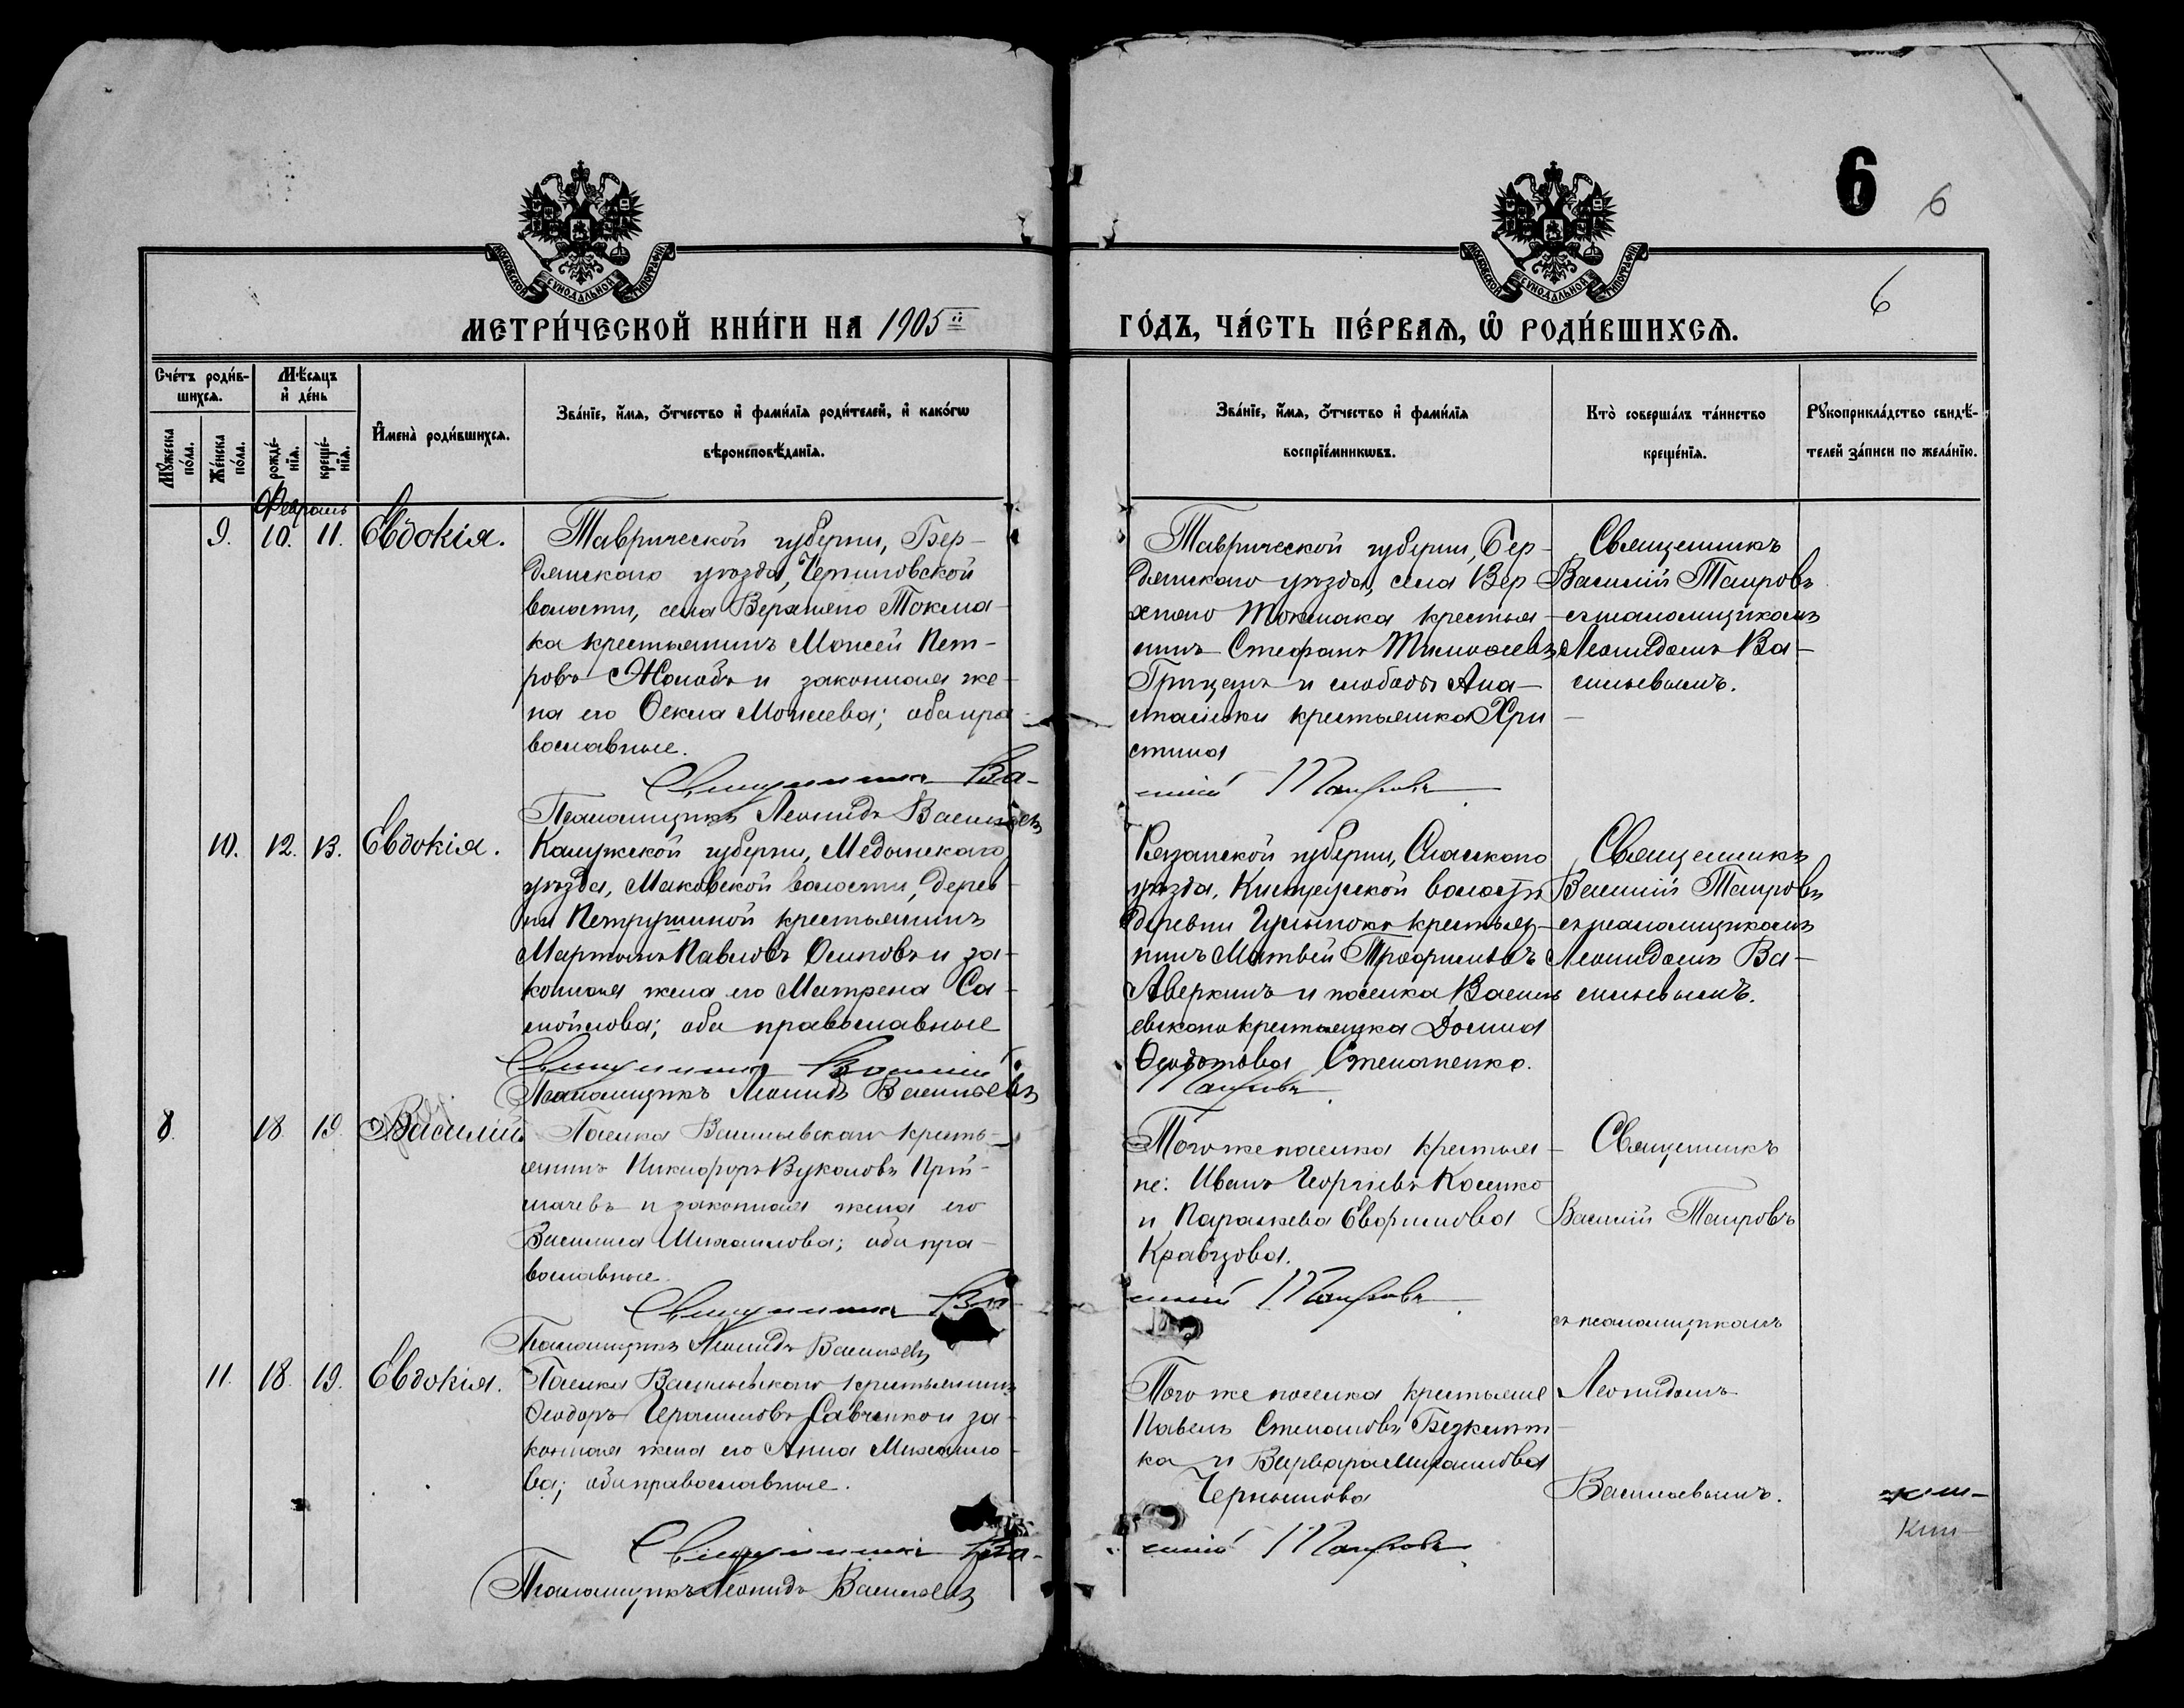 6
6
МОСКОВСКОЙ СУНОДАЛЬНОЙ ТИПОГРАФІИ
МОСКОВСКОЙ СУНОДАЛЬНОЙ ТИПОГРАФІИ
6
МЕТРИ́ЧЕСКОЙ КНИ́ГИ НА 1905й
ГО́ДЪ, ЧА́СТЬ ПЕ́РВАЯ, Ѿ РОДИ́ВШИХСЯ.
Сче́тъ роди́в-
шихся.
Мѣ́сяцъ
и҆ де́нь
Мꙋ́жеска
по́ла.
Же́нска
по́ла.
рожде́-
нїя.
креще́-
нїя.
И҆мена̀ роди́вшихся.
Зва́нїе, и҆́мя, ѻ҆́тчество и҆ фами́лїя роди́телей, и҆ како́гѡ
вѣроисповѣ́данїя.
Зва́нїе, и҆́мя, ѻ҆́тчество и҆ фами́лїя
воспрїе́мникѡвъ.
Кто̀ соверша́лъ та́инство
креще́нїя.
Рꙋкоприкла́дство свидѣ́-
телей за́писи по жела́нїю.
Февраль
9. 10. 11. Евдокія.
Таврической губерніи, Бер-
дянскаго уѣзда, Черниговской
волости, села Верхняго Токма-
ка крестьянинъ Моисей Пет-
ровъ Жолобъ и законная же-
на его Ѳекла Моисеева; оба пра-
вославные.
Священникъ Ва-
Псаломщикъ Леонидъ Васильевъ
Таврической губерніи, Бер-
дянскаго уѣзда, села Вер-
хняго Токмака крестья-
нинъ Стефанъ Тимоѳеевъ
Грицинъ и слободы Ана-
крестьянка Хри-
стина
силій Таировъ
Священникъ
Василій Таировъ
съ псаломщикомъ
Леонидомъ Ва-
сильевымъ.
10. 12. 13. Евдокія.
Калужской губерніи, Медынскаго
уѣзда, Маковской волости, дерев-
ни Петрушиной крестьянинъ
Мартинъ Павловъ Осиповъ и за-
конная жена его Матрена Са-
мойлова; оба православные
Священникъ Василій
Псаломщикъ Леонидъ Васильевъ
Рязанской губерніи, Спасскаго
уѣзда, волости
деревни крестья-
нинъ Матвей Трофимовъ
Аверкинъ и поселка Василь-
евскаго крестьянка Домна
Ѳедотова Степаненко.
Таировъ
Священникъ
Василій Таировъ
съ псаломщикомъ
Леонидомъ Ва-
сильевымъ.
8. 18. 19. Василій
Поселка Васильевскаго кресть-
янинъ Никифоръ Вуколовъ Прій-
мачевъ и законная жена его
Василиса Михаилова; оба пра-
вославные.
Священникъ Ва-
Псаломщикъ Леонидъ Васильевъ
Того же поселка крестья-
не: Иванъ Георгіевъ Косенко
и Параскева Евфимова
Кравцова.
силій Таировъ
Священникъ
Василій Таировъ
съ псаломщикомъ
11. 18. 19. Евдокія.
Поселка Васильевскаго крестьянинъ
Ѳеодоръ Герасимовъ Савченко и за-
конная жена его Анна Михаило-
ва; оба православные.
Священникъ Ва-
Псаломщикъ Леонидъ Васильевъ
Того же поселка крестьяне
Павелъ Степановъ
ка и Варвара Михаилова
Чернышова
силій Таировъ
Леонидомъ
Васильевымъ.